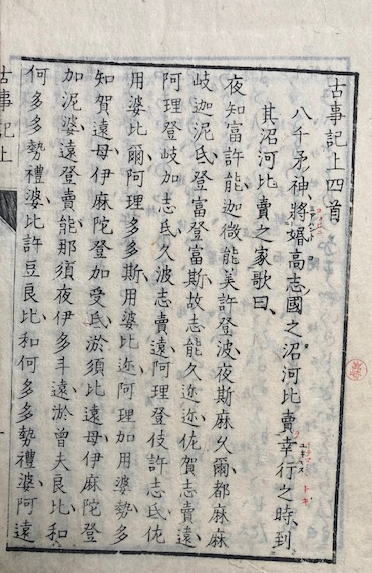 古事記上四首
八千矛神將婚高志國之沼河比賣幸行之時、到
其沼河比賣之家歌曰、
夜知富許能、迦微能美許登波、夜斯麻久爾、都麻麻
岐迦泥弖、登富登富斯、故志能久迩迩、佐賀志賣遠、
阿理登岐加志弖、久波志賣遠、阿理登伎許志弖、佐
用婆比爾、阿理多多斯、用婆比迩、阿理加用婆勢、多
知賀遠母、伊麻陀登加受弖、淤須比遠母、伊麻陀登
加泥婆、遠登賣能、那須夜伊多斗遠、淤曾夫良比、和
何多多勢禮婆、比許豆良比、和何多多勢禮婆、阿遠
古事記上